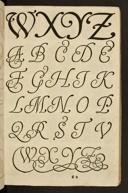 WXYZ
ABCDE
FGHIK
LMNOP
QRSTV
WXYZ